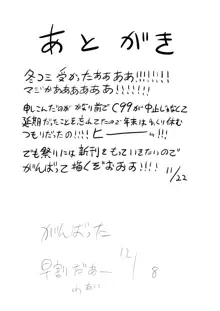 あとがき
冬コミ受かったぁぁぁぁ!!!!!!!
マジかぁぁぁぁぁぁ!!!!!!!
申しこんだのがかなり前でC99が中止じゃなくて
延期だったことを忘れてたので年末はゆっくり休む
つもりだったの!!!! ヒーーー!!!
でも祭りには新刊をもっていきたいので
がんばって描くぞぉぉぉ!!!!
11/22
がんばった
早割だぁー
12/8